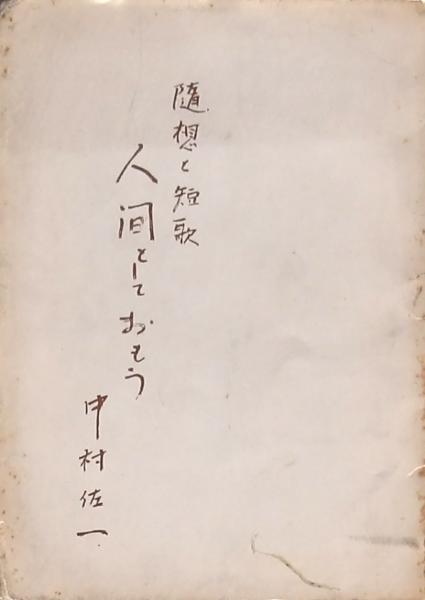 随想と短歌
人间としておもう
中村佐一